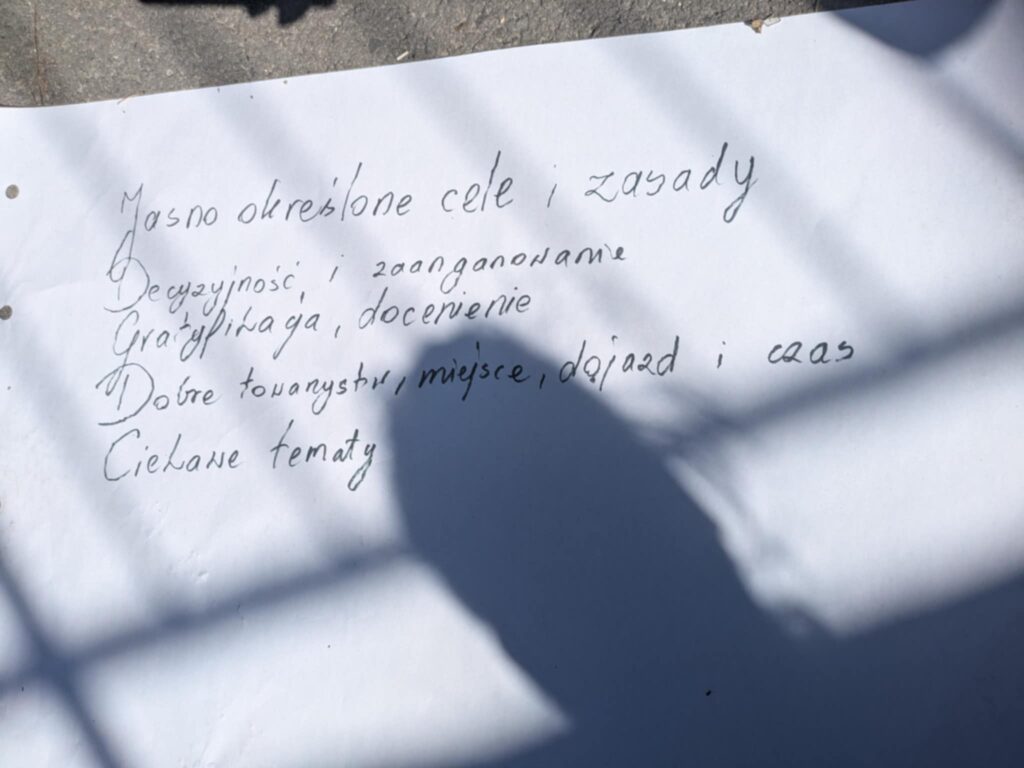 Jasno określone cele i zasady
Decyzyjność, i zaanganowanie
Gratyfikaga, docenienie
Dobre towarzystw, miejsce, dojazd i czas
Ciekawe tematy